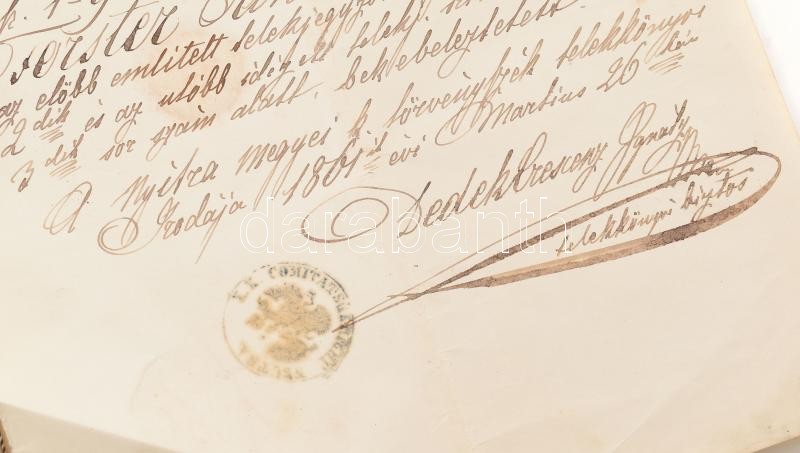 az előbb említett telekjegyző
2dik és az utóbb idézett telekj.
3dik sor szám alatt, bekebeleztetett.
A Nyitra megyei k törvényszék telekkönyvi
Irodája 1861ik évi Martius 26kán
Dedek Crescenz
telekkönyvi biztos
darabanth
K.K. COMITATSGERICHT NEUTRA